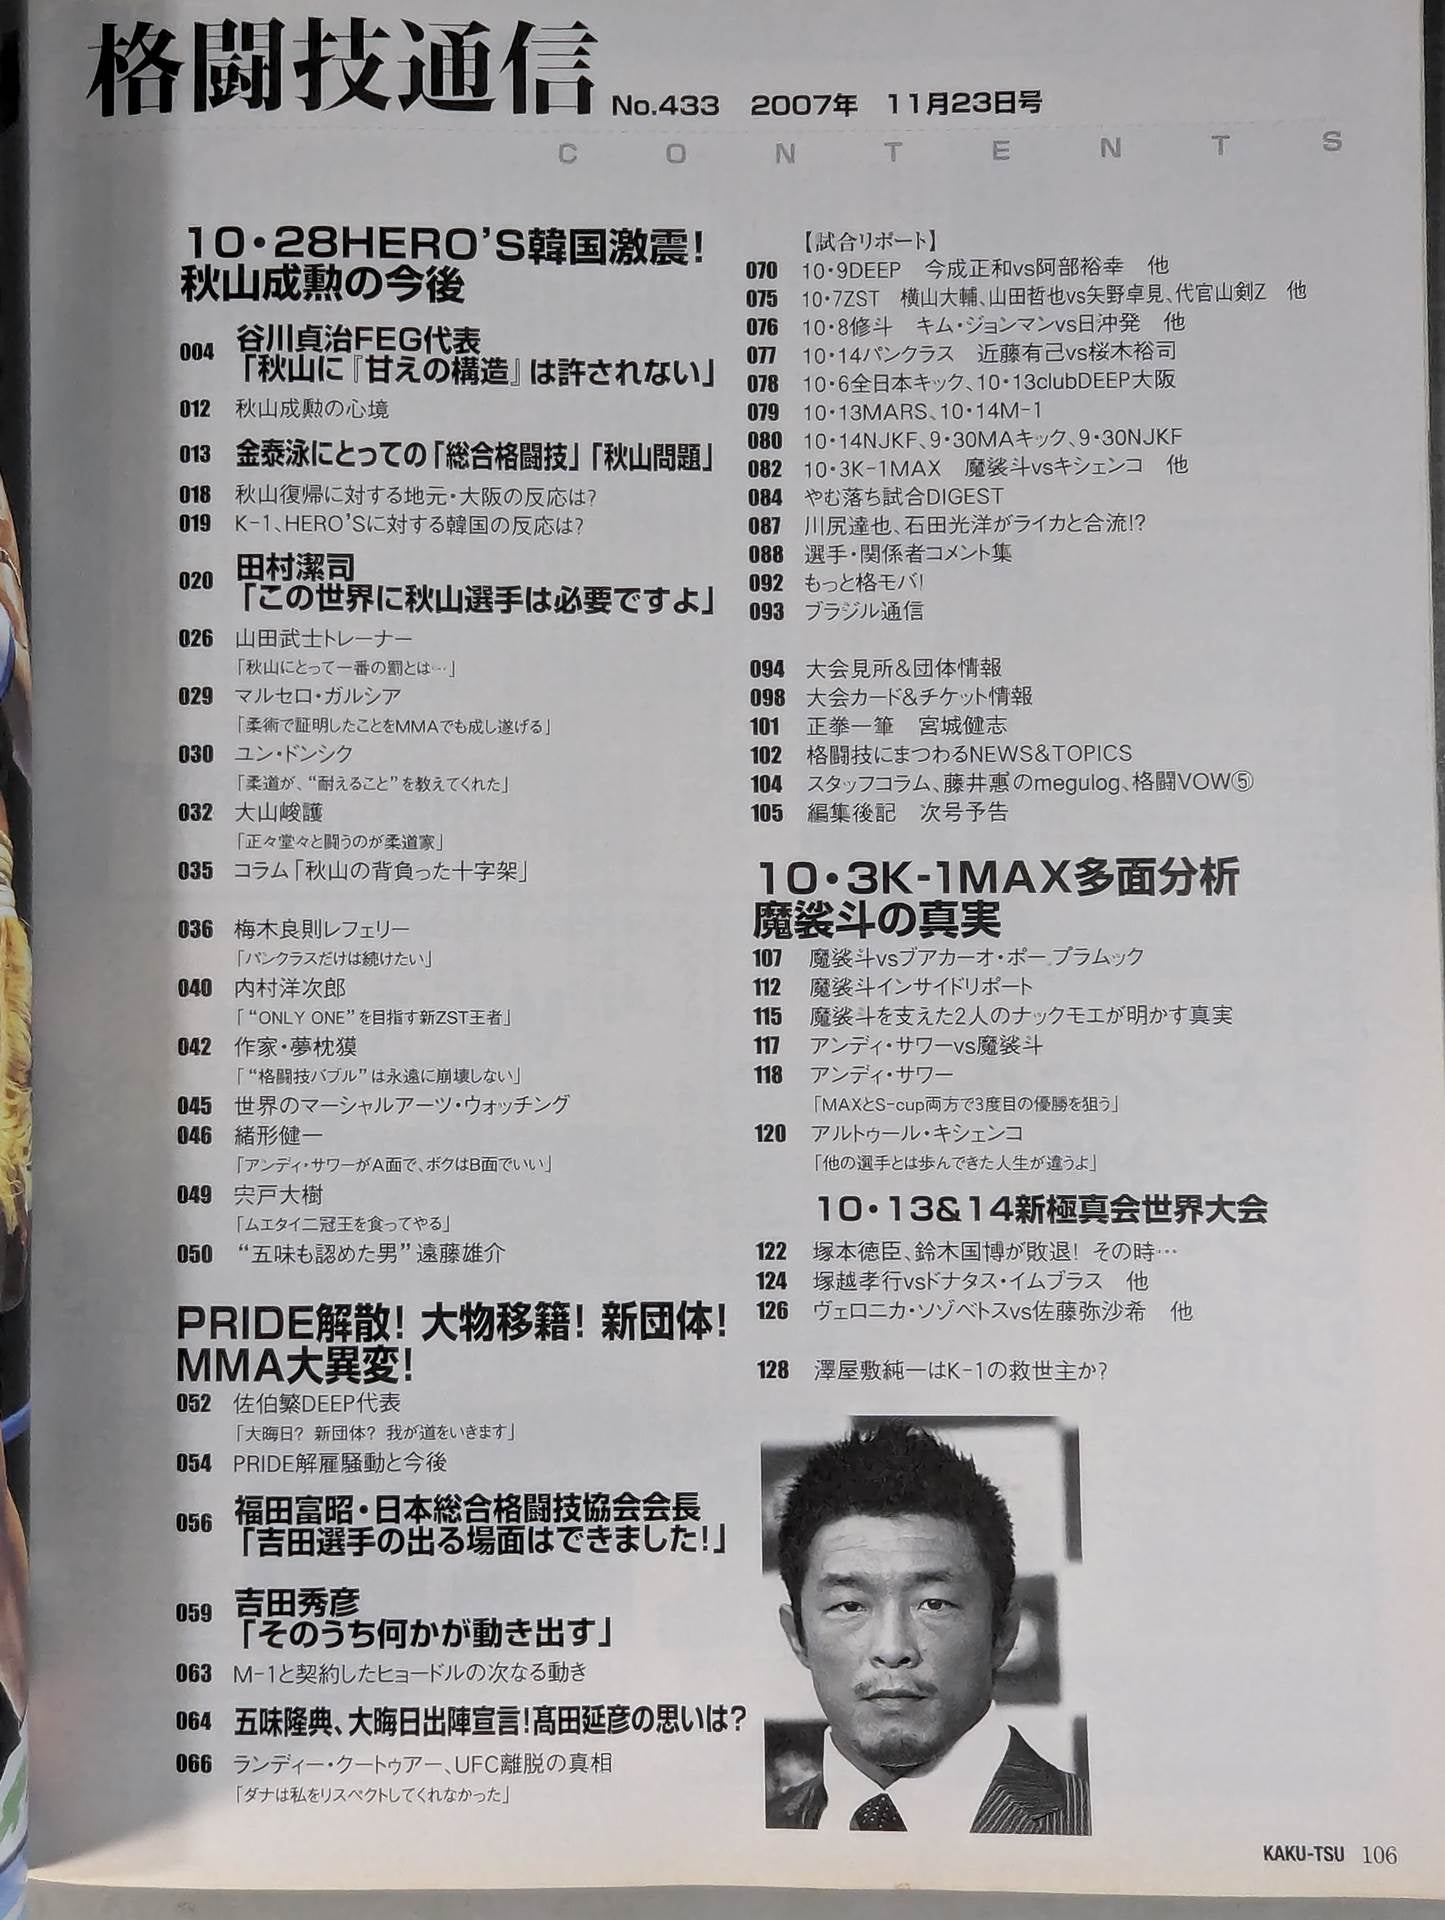 格闘技通信 No.433 2007年 11月23日号
CONTENTS
10・28HERO'S韓国激震!
秋山成勲の今後
004 谷川貞治FEG代表
「秋山に『甘えの構造』は許されない」
012 秋山成勲の心境
013 金泰泳にとっての「総合格闘技」「秋山問題」
018 秋山復帰に対する地元・大阪の反応は?
019 K-1、HERO'Sに対する韓国の反応は?
020 田村潔司
「この世界に秋山選手は必要ですよ」
026 山田武士トレーナー
「秋山にとって一番の罰とは…」
029 マルセロ・ガルシア
「柔術で証明したことをMMAでも成し遂げる」
030 ユン・ドンシク
「柔道が、“耐えること”を教えてくれた」
032 大山峻護
「正々堂々と闘うのが柔道家」
035 コラム「秋山の背負った十字架」
036 梅木良則レフェリー
「パンクラスだけは続けたい」
040 内村洋次郎
「“ONLY ONE”を目指す新ZST王者」
042 作家・夢枕獏
「“格闘技バブル”は永遠に崩壊しない」
045 世界のマーシャルアーツ・ウォッチング
046 緒形健一
「アンディ・サワーがA面で、ボクはB面でいい」
049 宍戸大樹
「ムエタイ二冠王を食ってやる」
050 “五味も認めた男”遠藤雄介
PRIDE解散! 大物移籍! 新団体!
MMA大異変!
052 佐伯繁DEEP代表
「大晦日? 新団体? 我が道をいきます」
054 PRIDE解雇騒動と今後
056 福田富昭・日本総合格闘技協会会長
「吉田選手の出る場面はできました!」
059 吉田秀彦
「そのうち何かが動き出す」
063 M-1と契約したヒョードルの次なる動き
064 五味隆典、大晦日出陣宣言!髙田延彦の思いは?
066 ランディー・クートゥアー、UFC離脱の真相
「ダナは私をリスペクトしてくれなかった」
【試合リポート】
070 10・9DEEP 今成正和vs阿部裕幸 他
075 10・7ZST 横山大輔、山田哲也vs矢野卓見、代官山剣Z 他
076 10・8修斗 キム・ジョンマンvs日沖発 他
077 10・14パンクラス 近藤有己vs桜木裕司
078 10・6全日本キック、10・13clubDEEP大阪
079 10・13MARS、10・14M-1
080 10・14NJKF、9・30MAキック、9・30NJKF
082 10・3K-1MAX 魔裟斗vsキシェンコ 他
084 やむ落ち試合DIGEST
087 川尻達也、石田光洋がライカと合流!?
088 選手・関係者コメント集
092 もっと格モバ!
093 ブラジル通信
094 大会見所&団体情報
098 大会カード&チケット情報
101 正拳一筆 宮城健志
102 格闘技にまつわるNEWS&TOPICS
104 スタッフコラム、藤井惠のmegulog、格闘VOW⑤
105 編集後記 次号予告
10・3K-1MAX多面分析
魔裟斗の真実
107 魔裟斗vsブアカーオ・ポー.プラムック
112 魔裟斗インサイドリポート
115 魔裟斗を支えた2人のナックモエが明かす真実
117 アンディ・サワーvs魔裟斗
118 アンディ・サワー
「MAXとS-cup両方で3度目の優勝を狙う」
120 アルトゥール・キシェンコ
「他の選手とは歩んできた人生が違うよ」
10・13&14新極真会世界大会
122 塚本徳臣、鈴木国博が敗退! その時…
124 塚越孝行vsドナタス・イムブラス 他
126 ヴェロニカ・ソゾベトスvs佐藤弥沙希 他
128 澤屋敷純一はK-1の救世主か?
KAKU-TSU 106